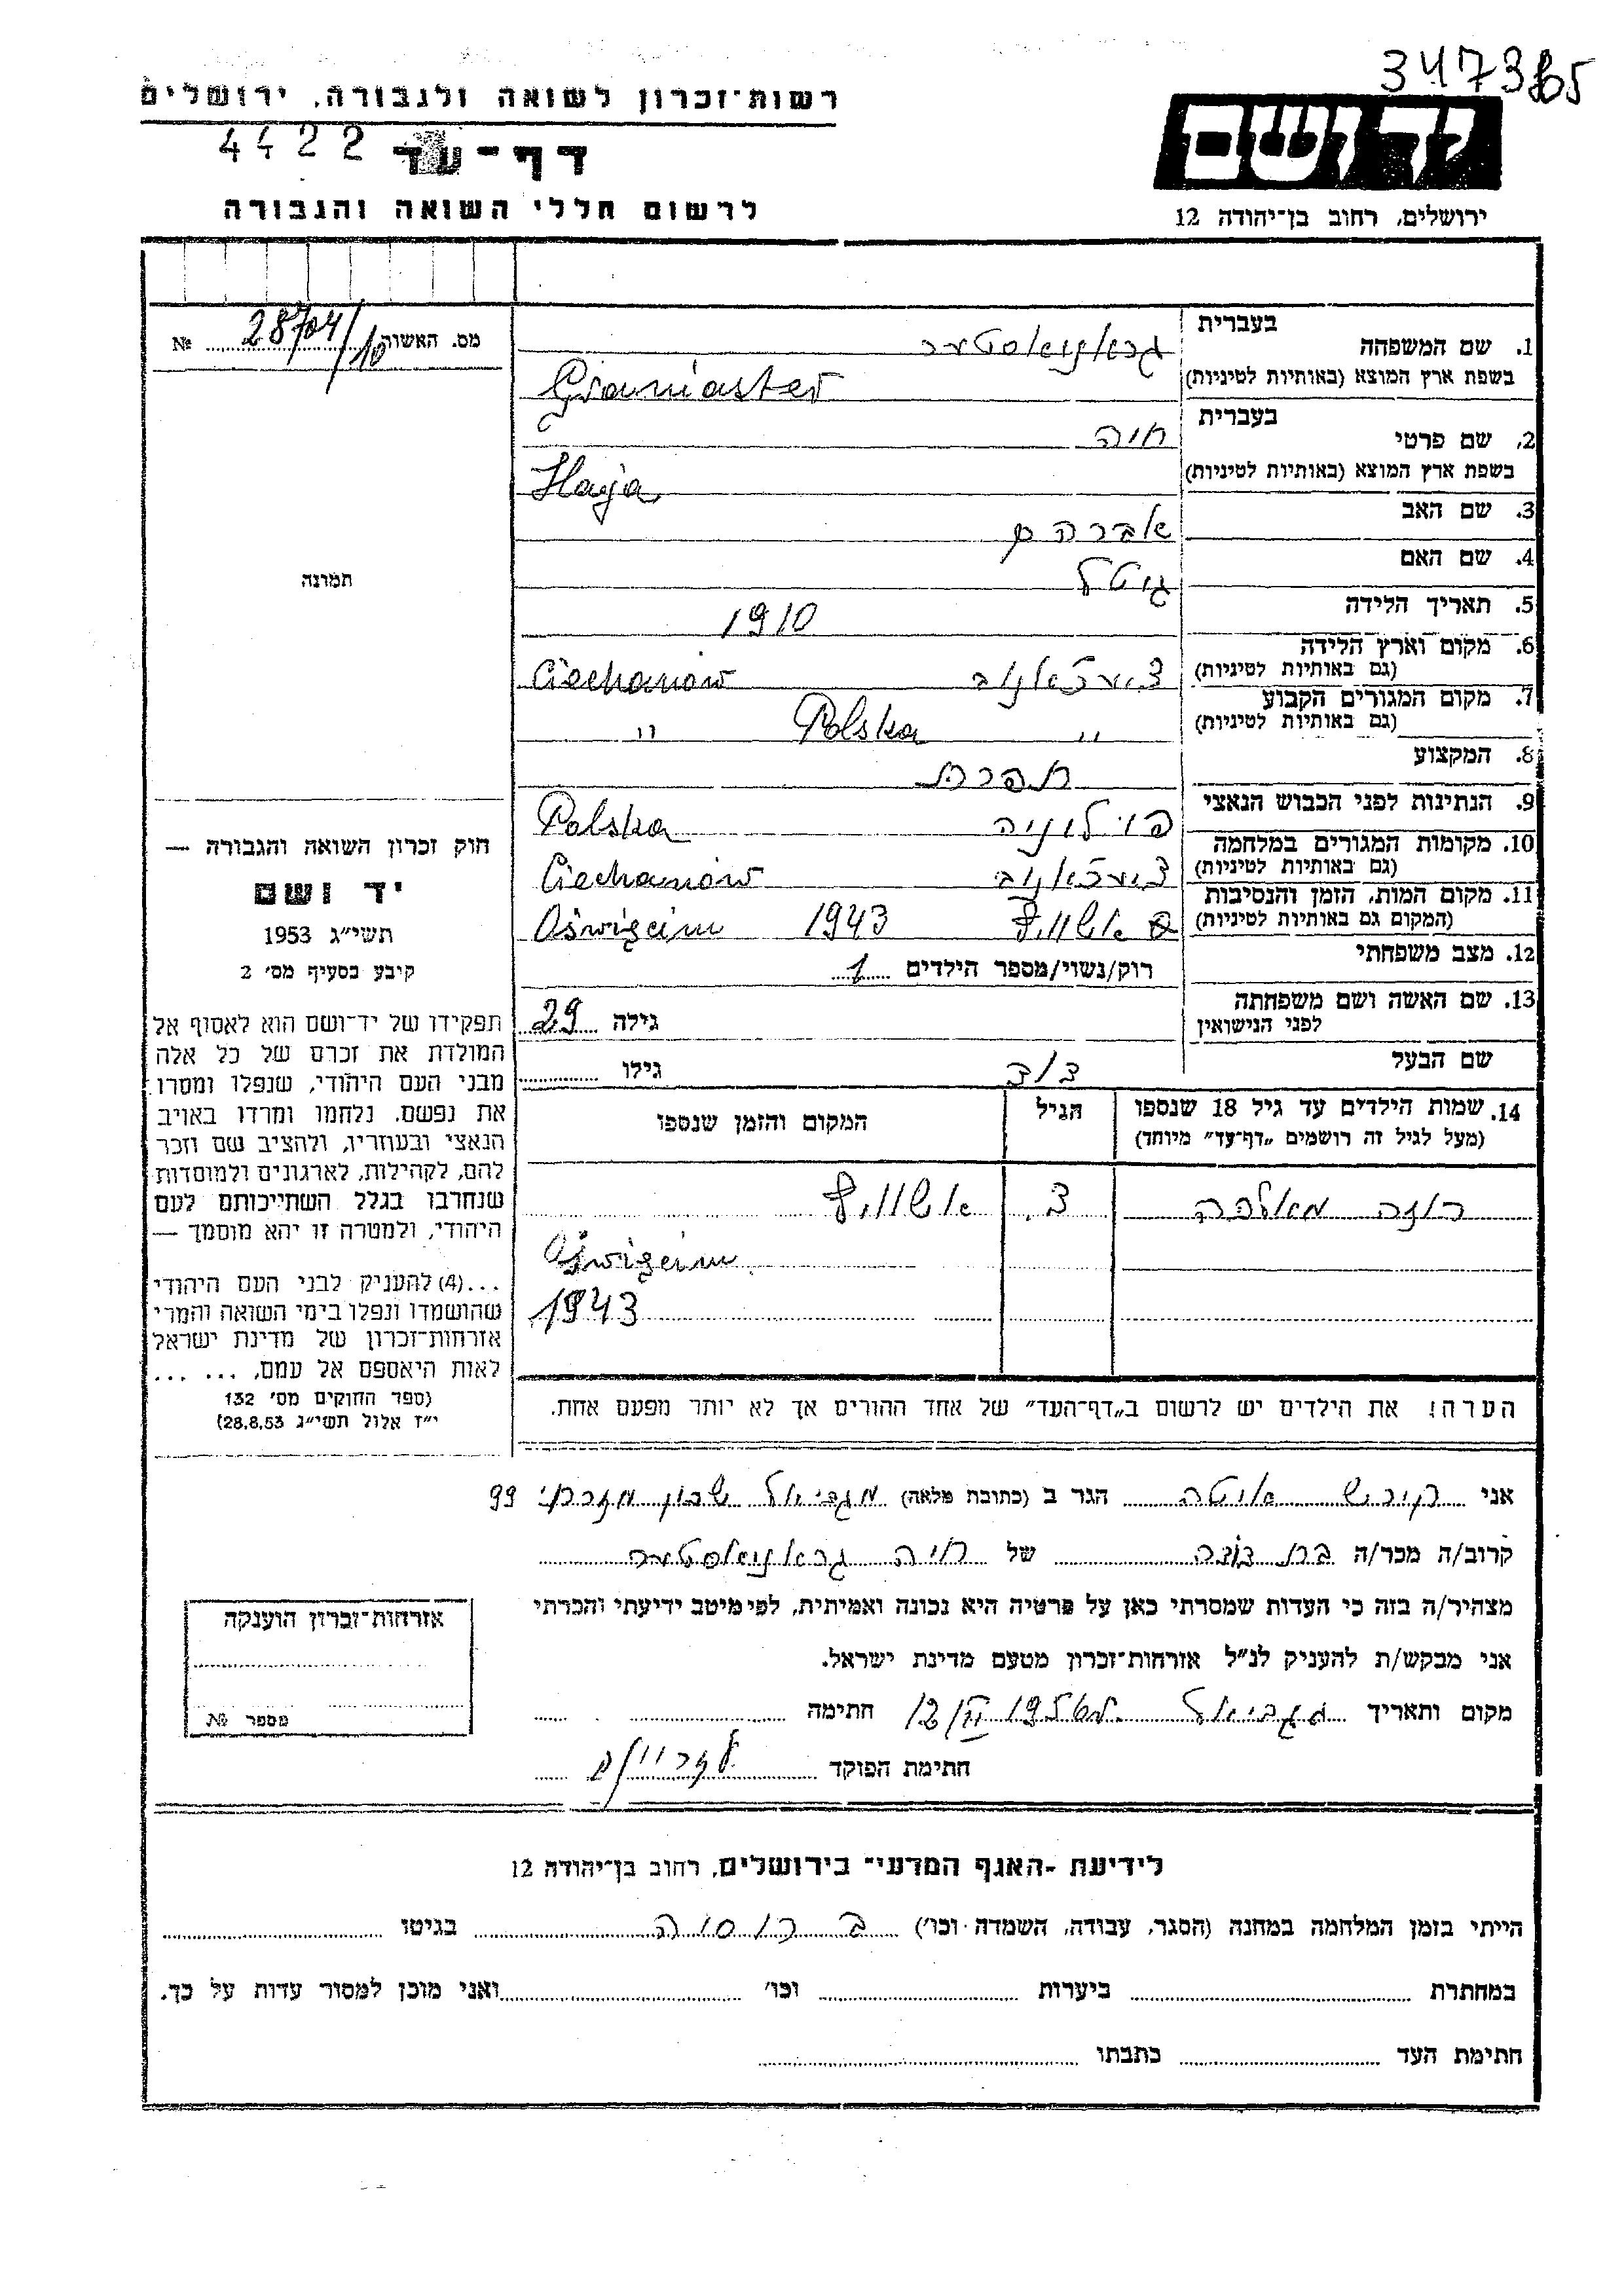 3473865
רשות־זכרון לשואה ולגבורה, ירושלים
4422
דף־עד
לרשום חללי השואה והגבורה
יד ושם
ירושלים, רחוב בן־יהודה 12
מס. האשור 28704/10 №
בעברית
1. שם המשפחה גראניאסטער
בשפת ארץ המוצא (באותיות לטיניות) Graniaster
בעברית
2. שם פרטי חיה
בשפת ארץ המוצא (באותיות לטיניות) Haja
3. שם האב אברהם
4. שם האם גיטל
5. תאריך הלידה 1910
6. מקום וארץ הלידה
(גם באותיות לטיניות) צ'עכאנוב Ciechanow
7. מקום המגורים הקבוע
(גם באותיות לטיניות) " Polska "
8. המקצוע תפרת
9. הנתינות לפני הכבוש הנאצי פוילוניה Polska
10. מקומות המגורים במלחמה
(גם באותיות לטיניות) צ'עכאנוב Ciechanow
11. מקום המות, הזמן והנסיבות
(המקום גם באותיות לטיניות) אשוויץ 1943 Oświęcim
12. מצב משפחתי
רוק/נשוי/מספר הילדים 1
13. שם האשה ושם משפחתה
לפני הנישואין
גילה 29
שם הבעל דוד גילו
14. שמות הילדים עד גיל 18 שנספו
(מעל לגיל זה רושמים „דף־עד" מיוחד)
הגיל
המקום והזמן שנספו
אשוויץ
Oświęcim
1943
הערה! את הילדים יש לרשום ב„דף־העד" של אחד ההורים אך לא יותר מפעם אחת.
תמונה
חוק זכרון השואה והגבורה —
יד ושם
תשי״ג 1953
קיבע בסעיף מס׳ 2
תפקידו של יד־ושם הוא לאסוף אל
המולדת את זכרם של כל אלה
מבני העם היהודי, שנפלו ומסרו
את נפשם, נלחמו ומרדו באויב
הנאצי ובעוזריו, ולהציב שם וזכר
להם, לקהילות, לארגונים ולמוסדות
שנחרבו בגלל השתייכותם לעם
היהודי, ולמטרה זו יהא מוסמך —
...(4) להעניק לבני העם היהודי
שהושמדו ונפלו בימי השואה והמרי
אזרחות־זכרון של מדינת ישראל
לאות היאספם אל עמם, ... ...
(ספר החוקים מס׳ 132
י״ז אלול תשי״ג 28.8.53)
אני קירש איטה הגר ב (כתובת מלאה) מגדיאל שכון מזרחי 99
קרוב/ה מכר/ה בת דודה של חיה גראניאסטער
מצהיר/ה בזה כי העדות שמסרתי כאן על פרטיה היא נכונה ואמיתית, לפי מיטב ידיעתי והכרתי
אני מבקש/ת להעניק לנ״ל אזרחות־זכרון מטעם מדינת ישראל.
מקום ותאריך מגדיאל חתימה
חתימת הפוקד
אזרחות־זכרון הוענקה
מספר №
לידיעת ־האגף המדעי־ בירושלים, רחוב בן־יהודה 12
הייתי בזמן המלחמה במחנה (הסגר, עבודה, השמדה וכו׳) ברוסיה בגיטו
במחתרת ביערות וכו׳ ואני מוכן למסור עדות על כך.
חתימת העד כתבתו